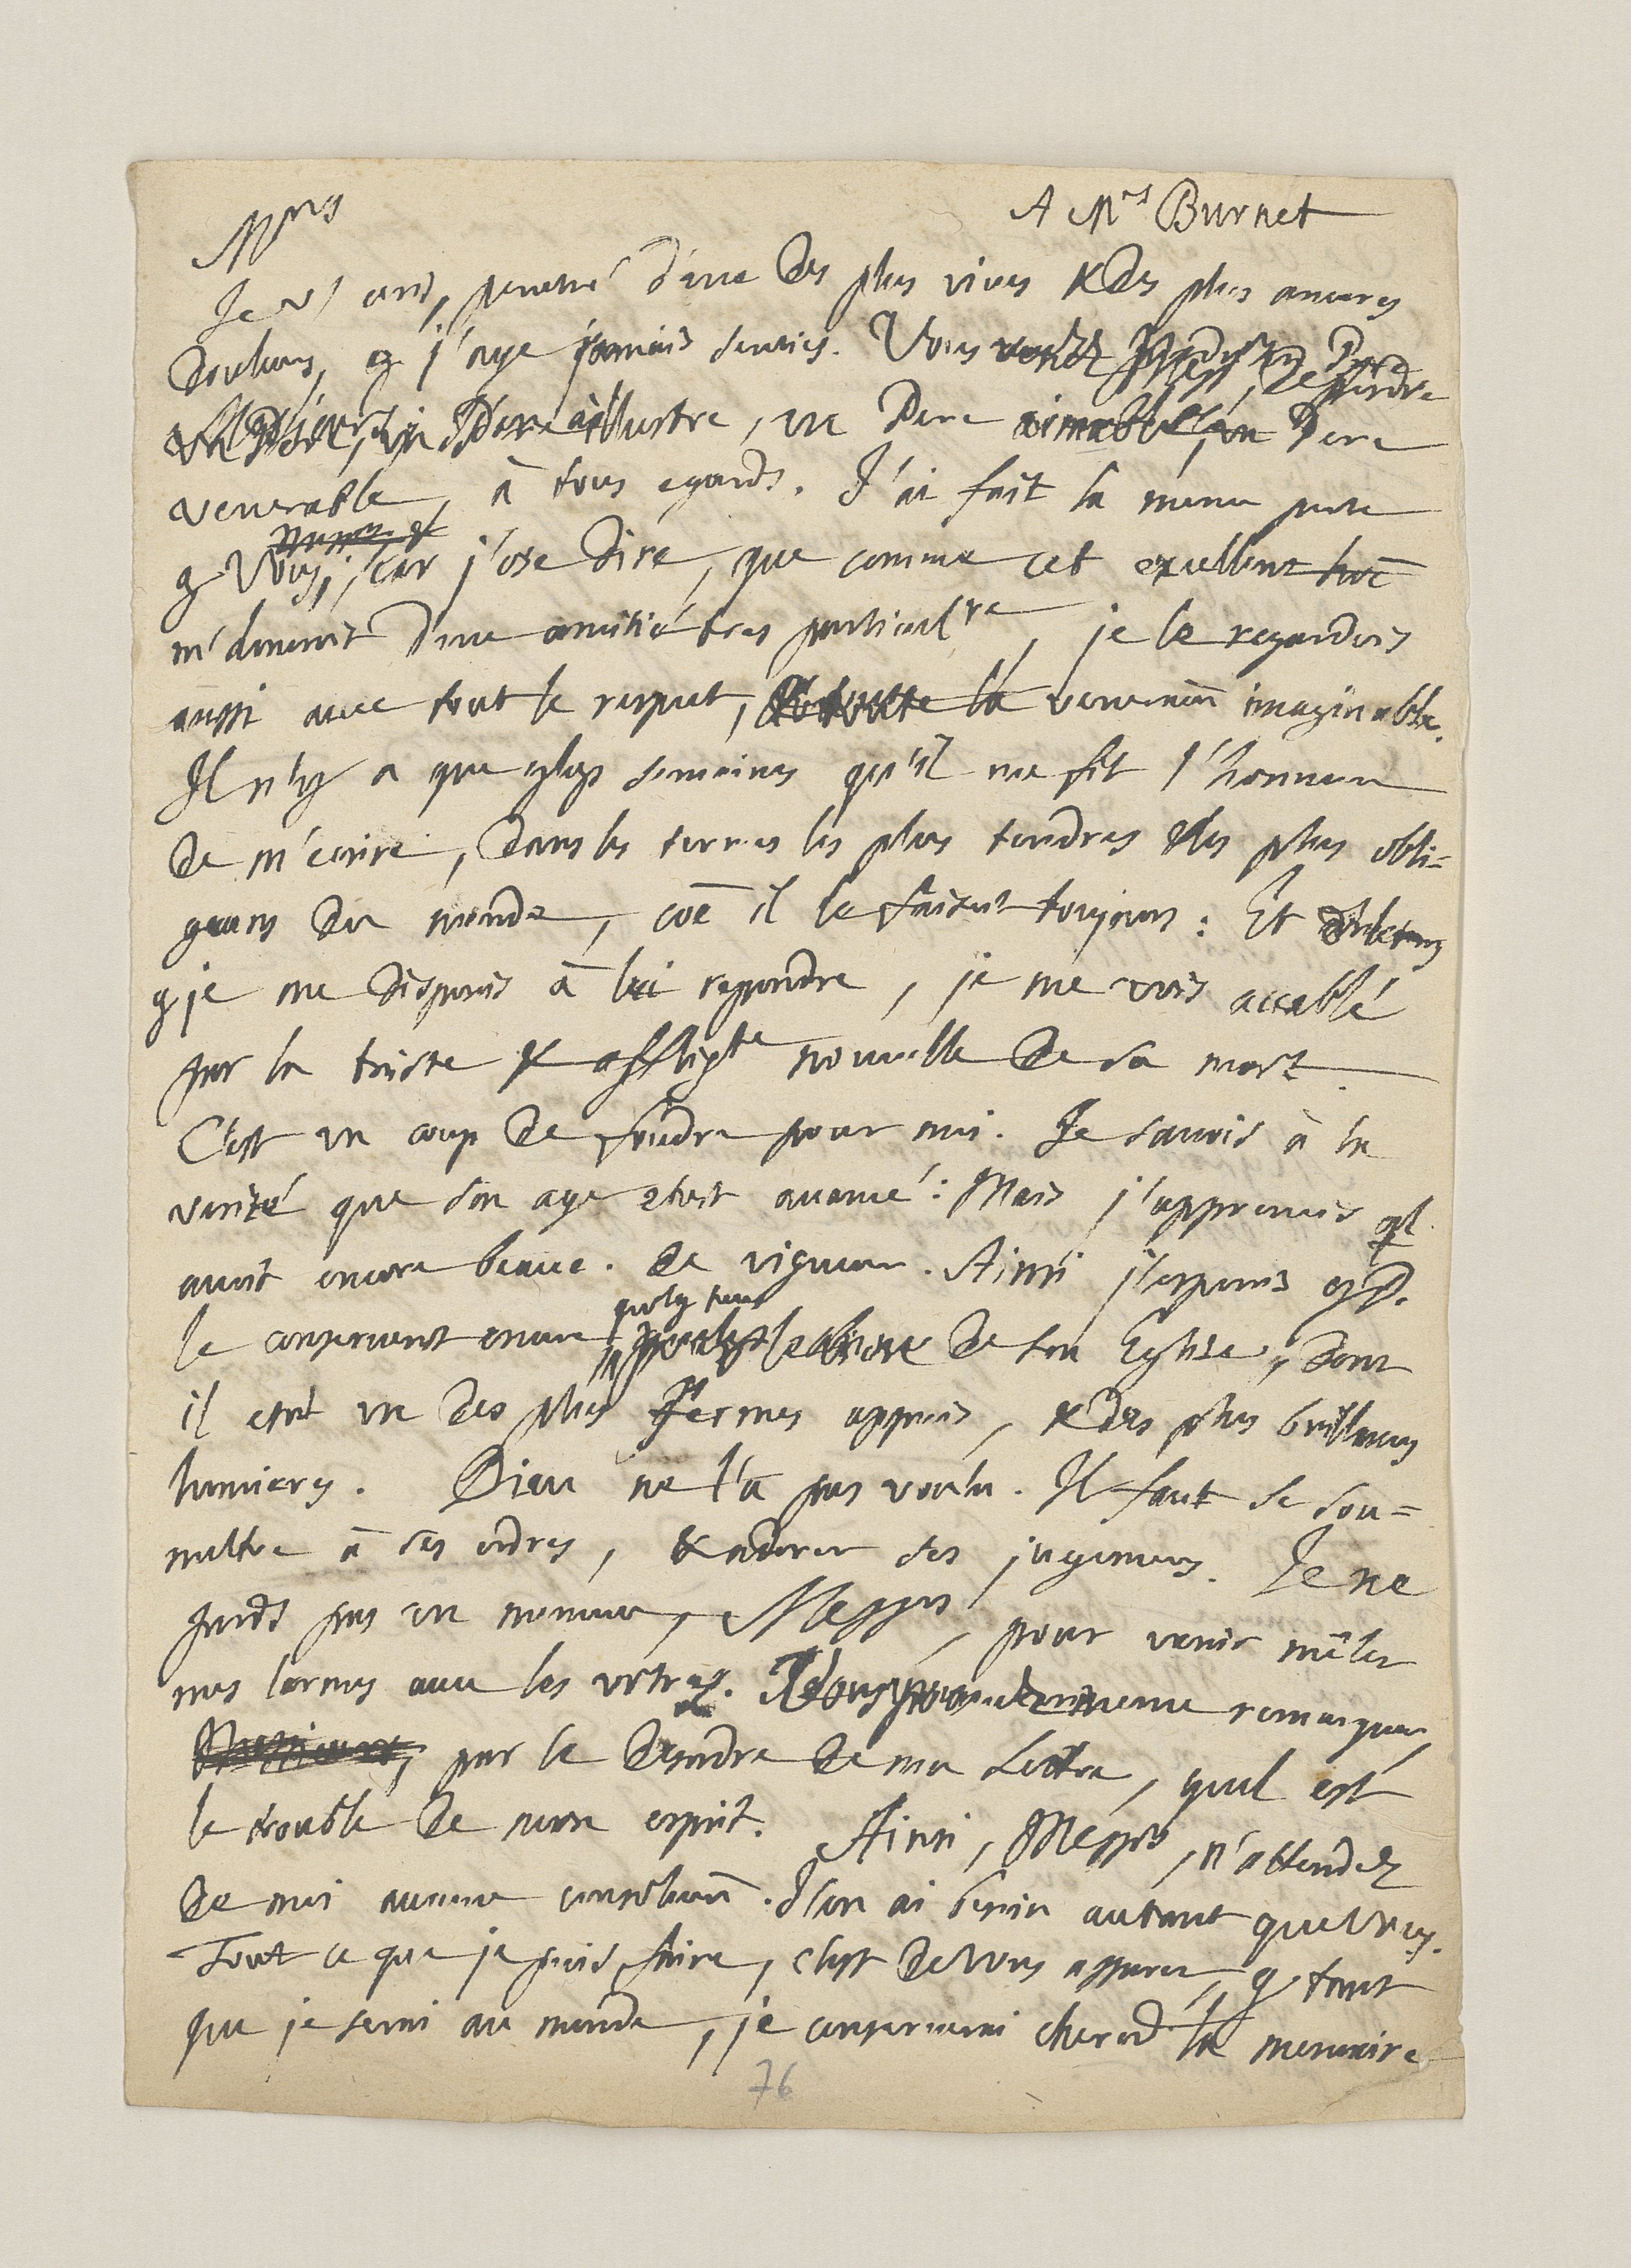 A Mrs Burnet
Mrs
Je v/ ecris, penetré d'une des plus vives & des plus ameres
douleurs, q j'aye jamais senties. Vous venez de perdre
un Pere illustre, un Pere aimable, un Pere
venerable, à tous egards. J'ai fait la même perte
q Vous; car j'ose dire, que comme cet excellent hoē
m'honoroit d'une amitié tres particulre, je le regardois
aussi avec tout le respect, & toute la veneraõn imaginable.
Il n'y a que qlqs semaines qu'il me fit l'honneur
de m'ecrire, dans les termes les plus tendres & les plus obli=
geans du monde, coē il le faisoit toujours: Et
q je me disposois à lui repondre, je me vois accablé
par la triste & affligte nouvelle de sa mort.
C'est un coup de foudre pour moi. Je savois à la
verité que son age etoit avancé: Mais j'apprenois ql
avoit encore beauc. de vigueur. Ainsi j'esperois q D.
le conserveroit encore qulq tems de son Eglise, dont
il etoit un des plus fermes appuis, & des plus brillantes
lumieres. Dieu ne l'a pas voulu. Il faut se sou=
mettre à ses ordres, & adorer ses jugemens. Je ne
perds pas un moment, Messrs, pour venir mêler
mes larmes avec les vôtres. remarquer
par le desordre de ma Lettre, quel est
le trouble de mon esprit. Ainsi, Messrs, n'attendez
de moi aucune consolaõn. J'en ai besoin autant que Vous.
Tout ce que je puis faire, c'est de Vous assurer, q tant
que je serai au monde, je conserverai cheremt la memoire
76